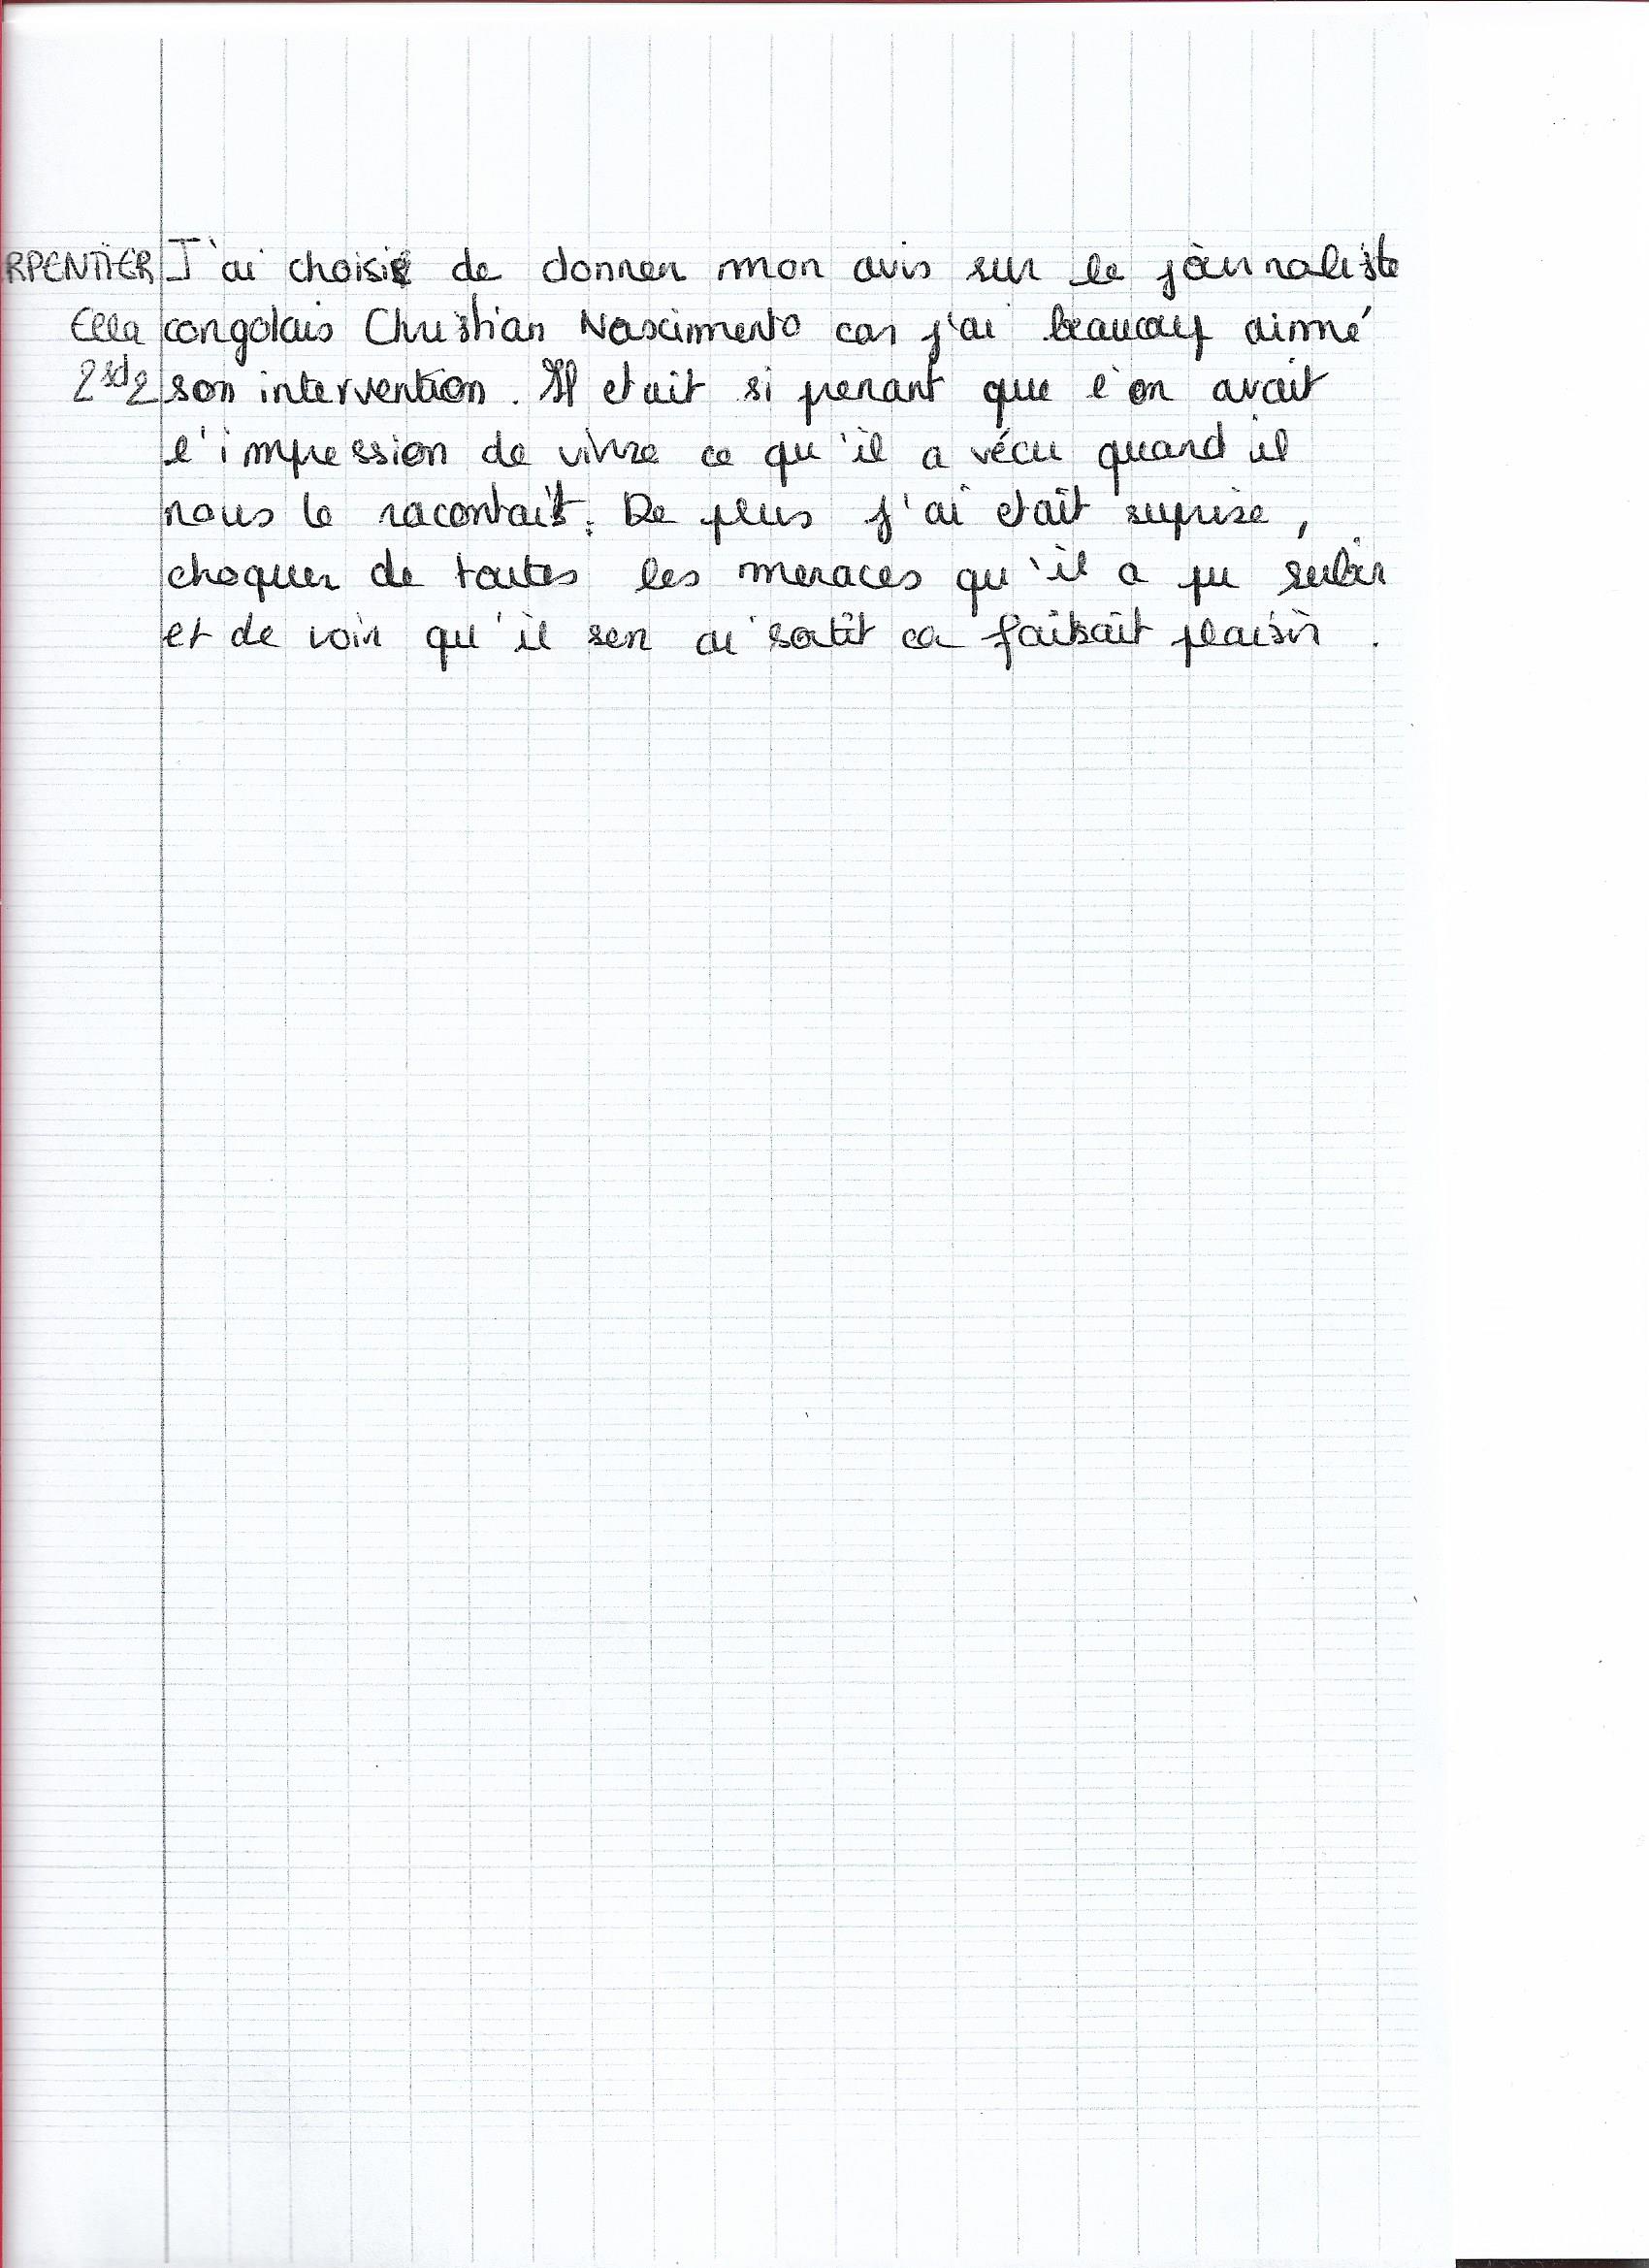 RPENTIER J'ai choisi de donner mon avis sur le journaliste
Ella congolais Christian Nascimento car j'ai beaucoup aimé
2nd2 son intervention. Il etait si prenant que l'on avait
l'impression de vivre ce qu'il a vécu quand il
nous le racontait. De plus j'ai etait suprise,
choquer de toutes les menaces qu'il a pu subir
et de voir qu'il sen ai sortit ca faisait plaisir.